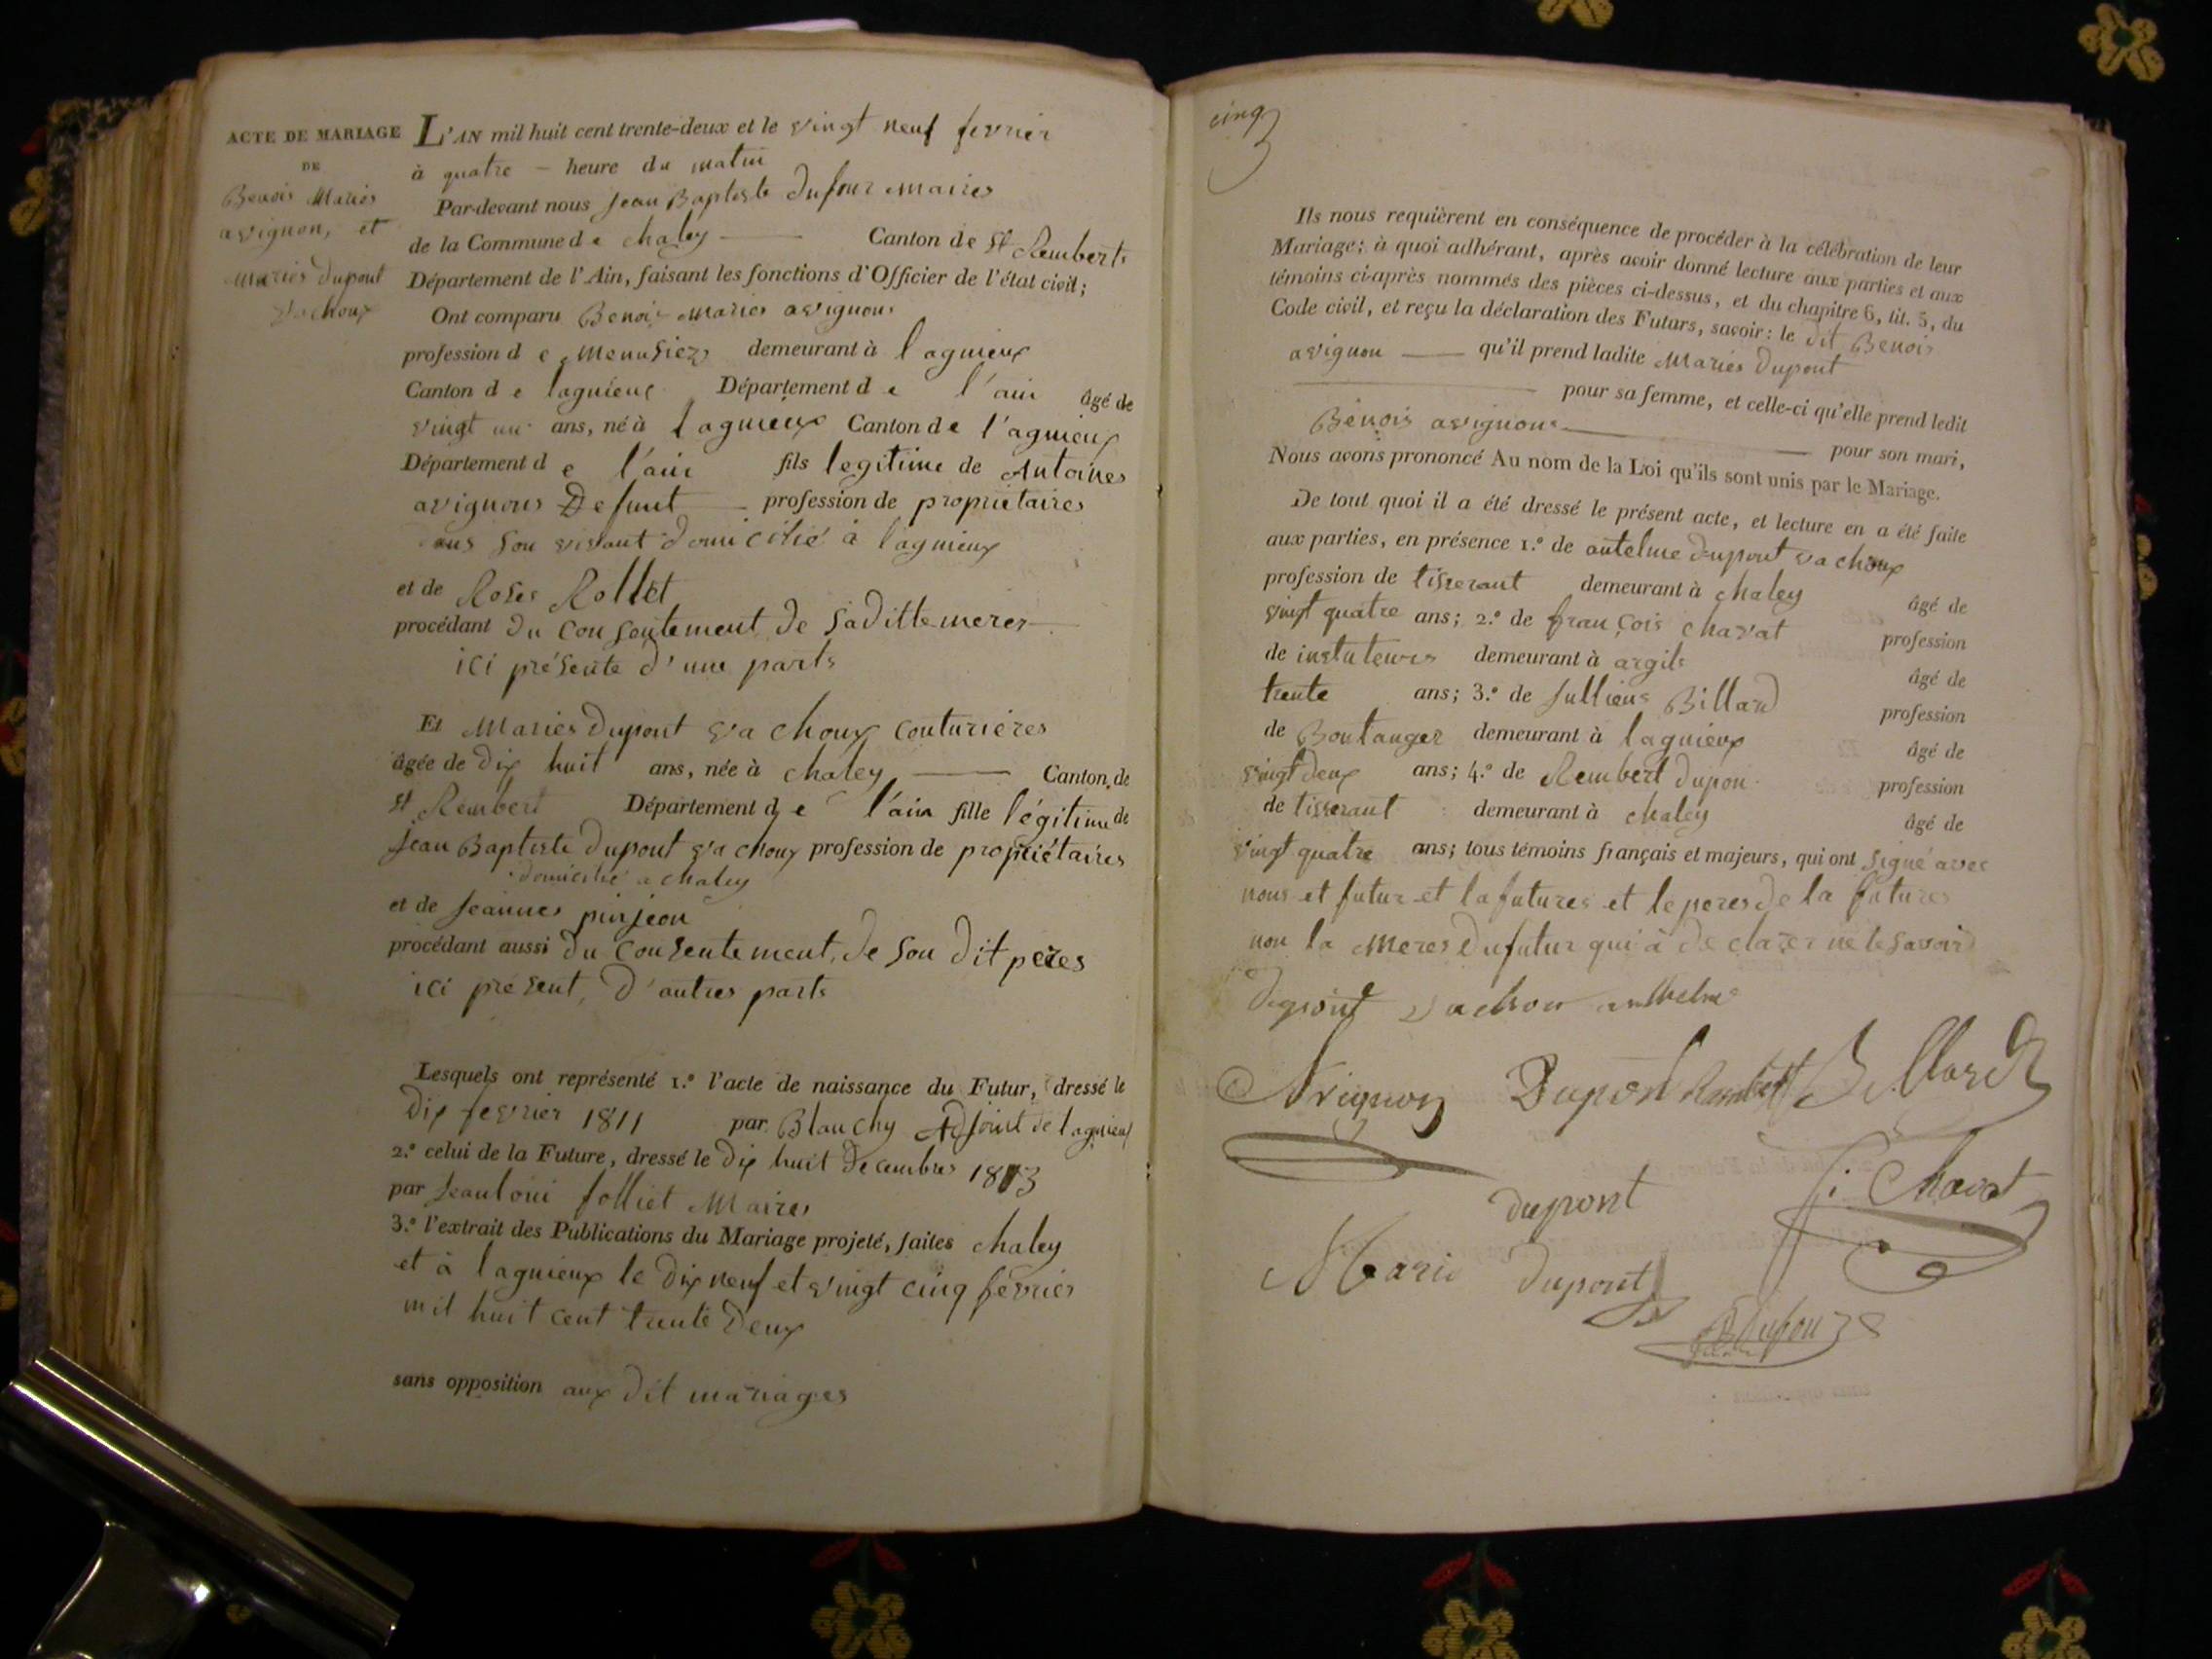 ACTE DE MARIAGE
DE
Benois Maries
avignon, et
Maries Dupont
vachoux
L'AN mil huit cent trente-deux et le vingt neuf fevrier
à quatre – heure du matin
Par-devant nous Jean Baptiste Dufour Maires
de la Commune de chaley Canton de St Rembert
Département de l'Ain, faisant les fonctions d'Officier de l'état civil;
Ont comparu Benois Maries avignons
profession de Menusiez demeurant à lagnieux
Canton de lagnieux Département de l'ain âgé de
vingt un ans, né à lagnieux Canton de l'agnieux
Département de l'ain fils legitime de Antoines
avignons Defunt profession de proprietaires
son vivant domicilié à lagnieux
et de Roses Rollet
procédant du consentement de saditte meres
ici présente d'une parts
Et Maries Dupont va choux couturières
âgée de dix huit ans, née à chaley Canton de
St Rembert Département de l'ain fille légitime de
Jean Baptiste Dupont va choux profession de propriétaires
domicilié a chaley
et de Jeannes pinjeon
procédant aussi du consentement de son dit peres
ici présent, d'autres parts
Lesquels ont représenté 1.º l'acte de naissance du Futur, dressé le
dix fevrier 1811 par Blanchy Adjoint de lagnieux
2.º celui de la Future, dressé le dix huit decembres 1813
par Jean loui folliet Maires
3.º l'extrait des Publications du Mariage projeté, faites chaley
et à lagnieux le dix neuf et vingt cinq fevrier
mil huit cent trente deux
sans opposition aux dit mariages
cinq
Ils nous requièrent en conséquence de procéder à la célébration de leur
Mariage; à quoi adhérant, après avoir donné lecture aux parties et aux
témoins ci-après nommés des pièces ci-dessus, et du chapitre 6, tit. 5, du
Code civil, et reçu la déclaration des Futurs, savoir: le dit Benois
avignon qu'il prend ladite Maries Dupont
pour sa femme, et celle-ci qu'elle prend ledit
Benois avignons
pour son mari,
Nous avons prononcé Au nom de la Loi qu'ils sont unis par le Mariage.
De tout quoi il a été dressé le présent acte, et lecture en a été faite
aux parties, en présence 1.º de antelme dupont va choux
profession de tisserant demeurant à chaley âgé de
vingt quatre ans; 2.º de françois chavat profession
de instuteurs demeurant à argils âgé de
trente ans; 3.º de Julliens Billard profession
de Boulanger demeurant à lagnieux âgé de
vingt deux ans; 4.º de Rembert dupon profession
de tisserant demeurant à chaley âgé de
vingt quatre ans; tous témoins français et majeurs, qui ont signé avec
nous et futur et la futures et le peres de la futures
non la Meres du futur qui à declarer ne le savoir
dupont vachou anthelme
Avignon Dupont Rambert Billard
dupont f. Chavat
Marie dupont
JB Dufour